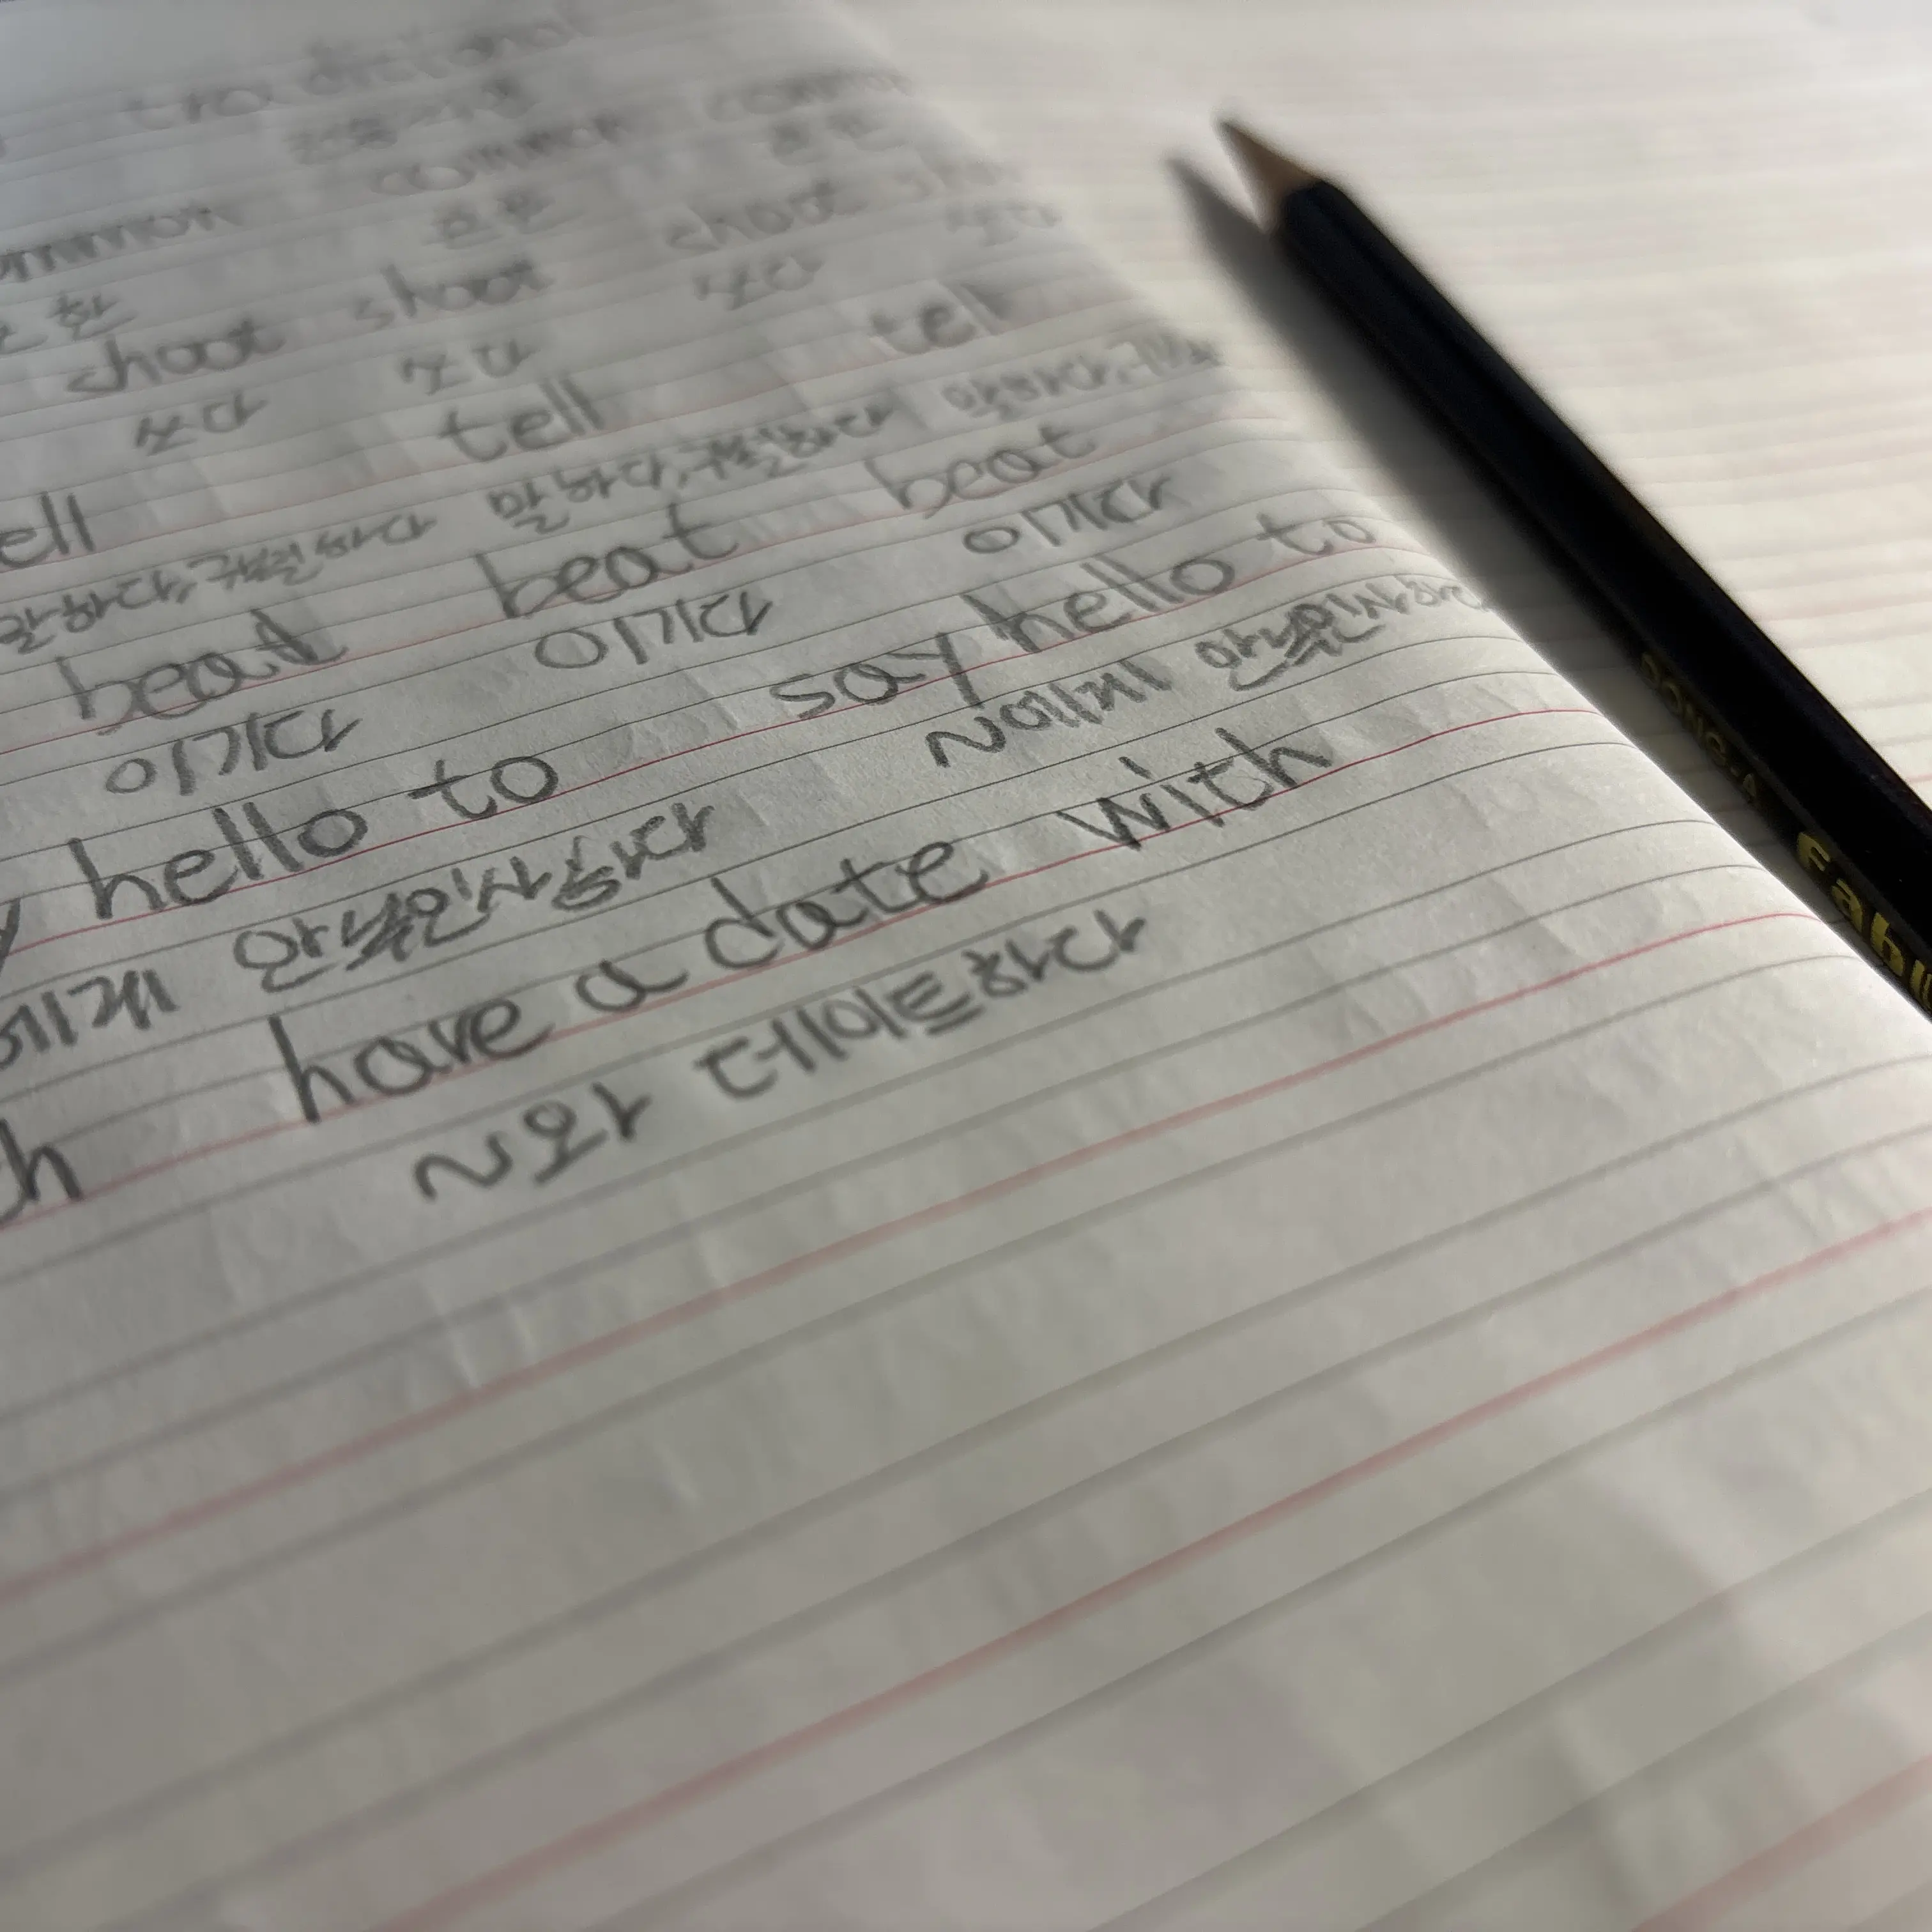 traditional
전통적인
common
common
흔한
흔한
shoot shoot shoot
쏘다 쏘다 쏘다
tell tell
말하다, 구별하다 말하다, 구별하다
beat beat beat
이기다 이기다 이기다
hello to say hello to
에게 안부인사하다 ~에게 안부인사하다
have a date with
~와 데이트하다
DONG-A